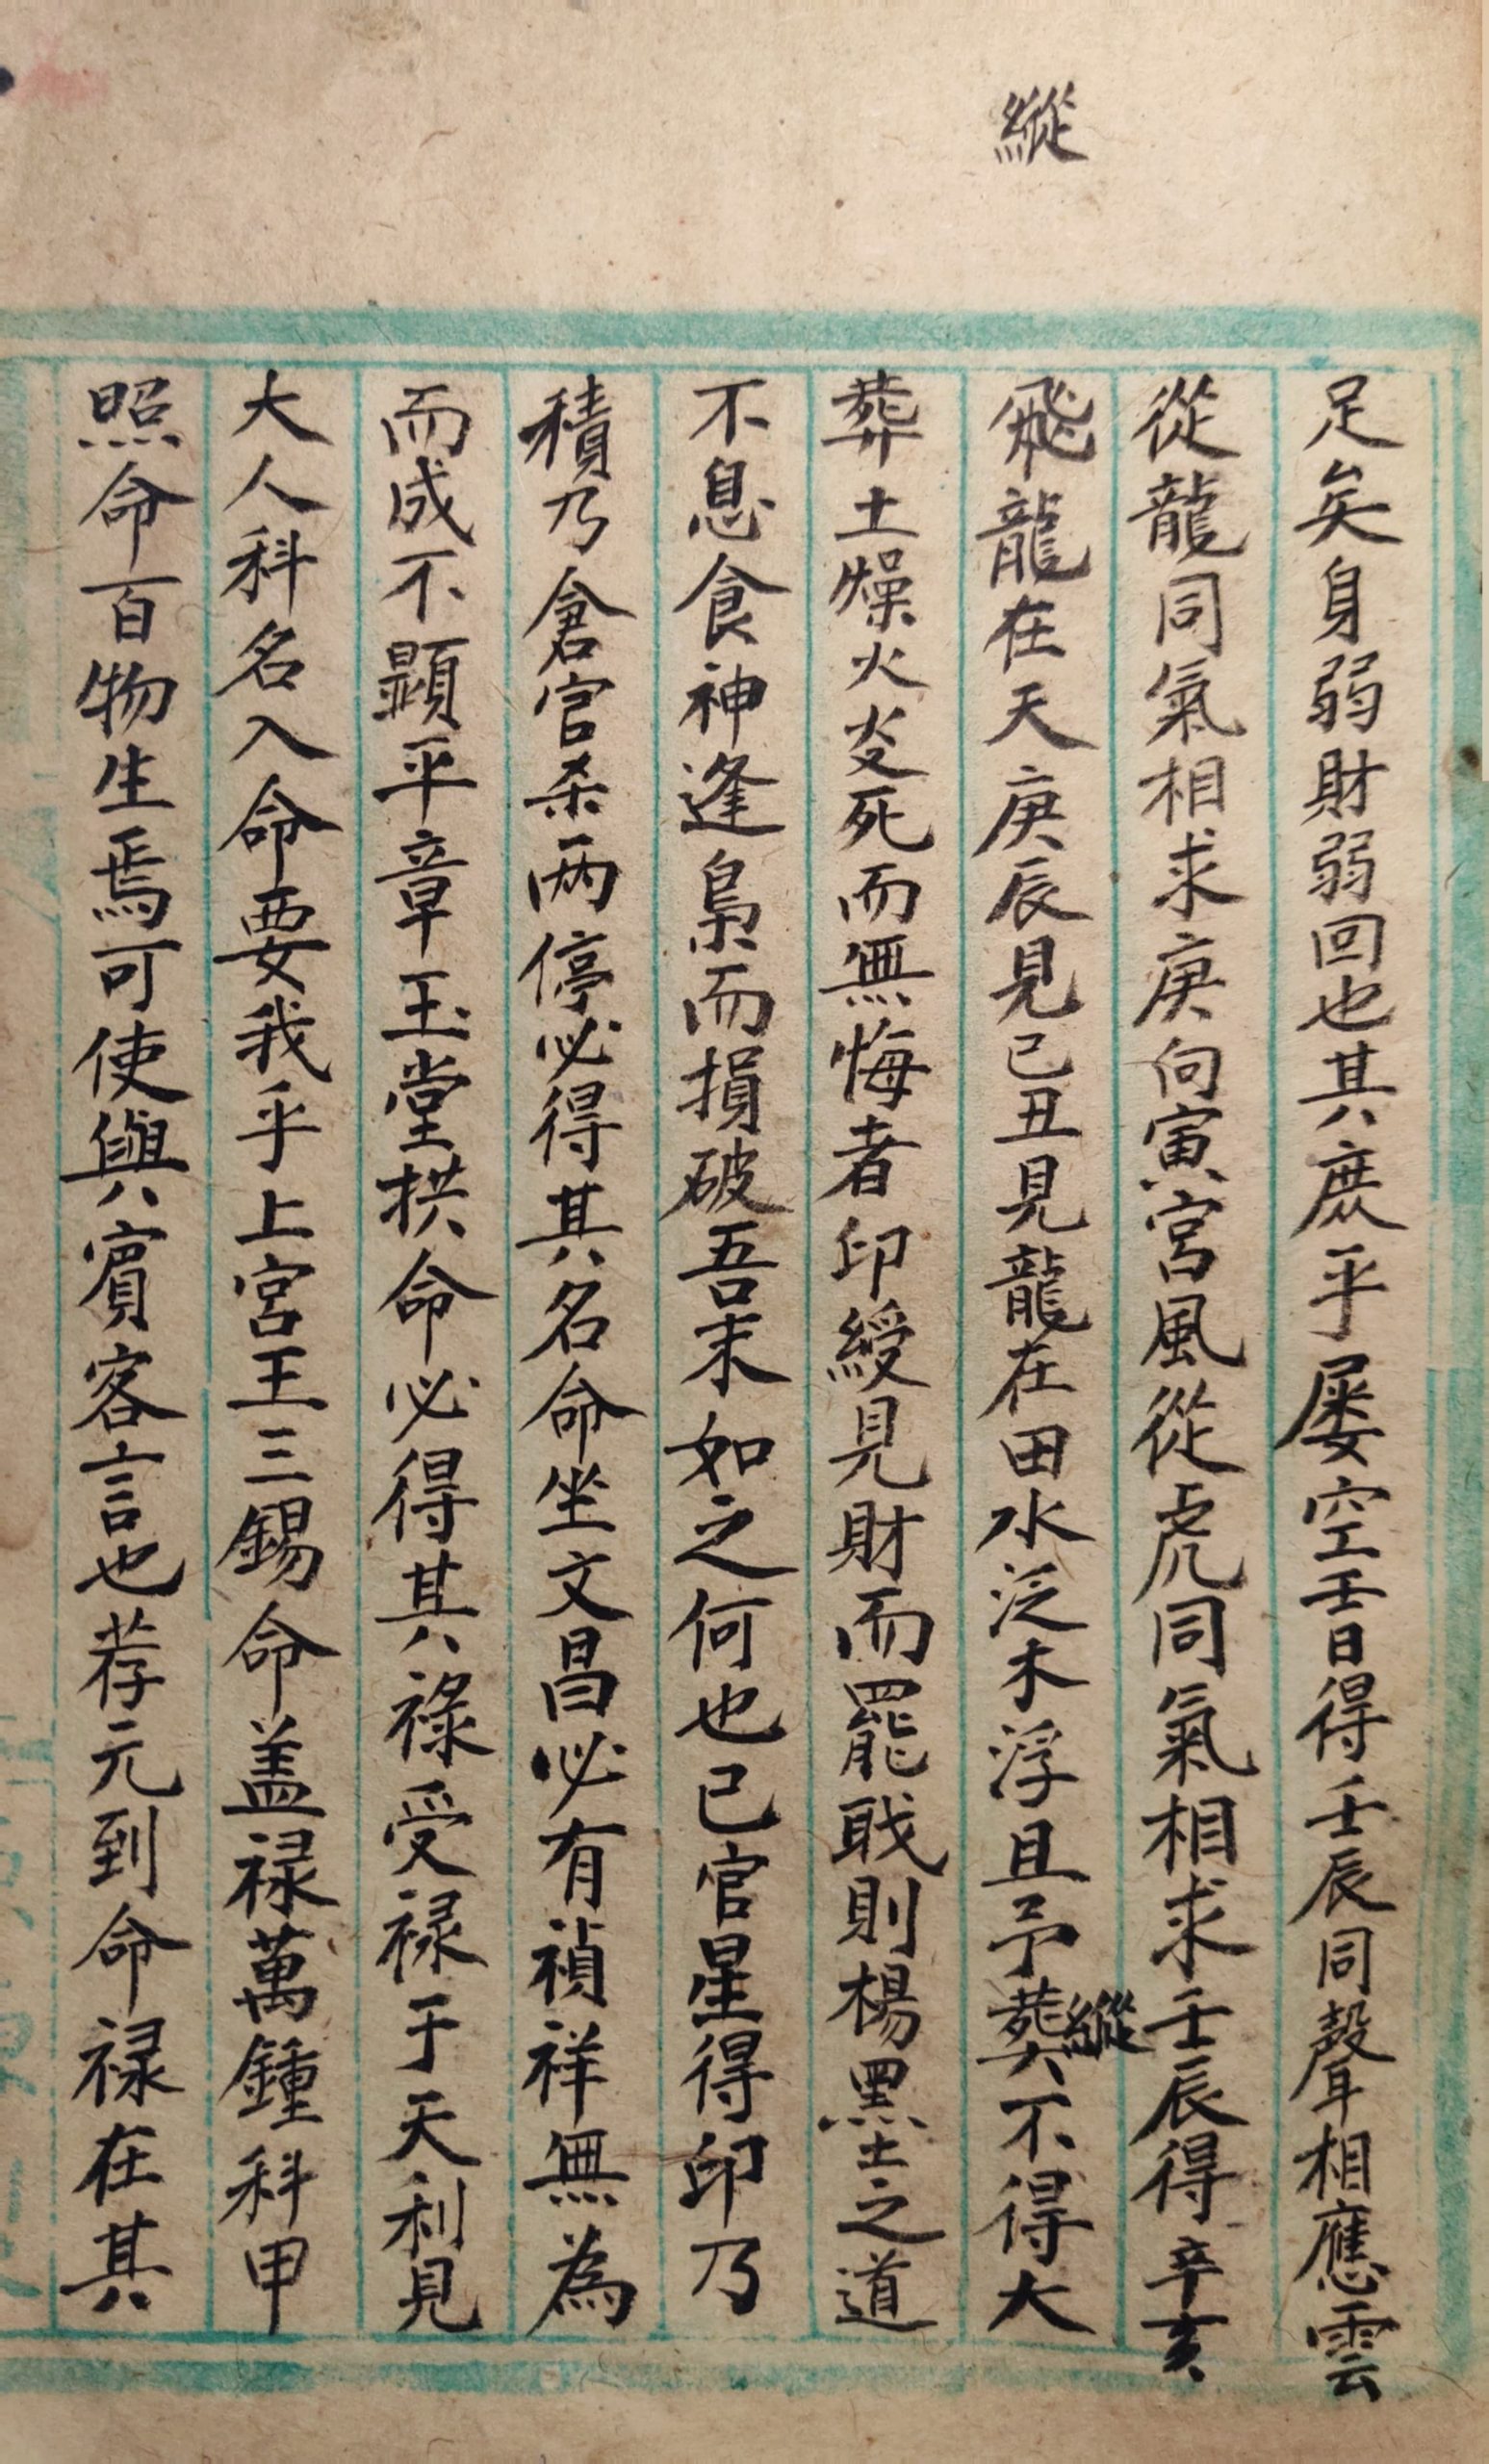 縱
足矣身弱財弱回也其庶乎屡空壬日得壬辰同聲相應雲
從龍同氣相求庚向寅宮風從虎同氣相求壬辰得辛亥
飛龍在天庚辰見己丑見龍在田水泛木浮且予葬不得大
縱
葬土燥火炎死而無悔者印綬見財而罷戢則楊墨之道
不息食神逢梟而損破吾末如之何也已官星得印乃
積乃倉官杀两停必得其名命坐文昌必有禎祥無為
而成不顕平章玉堂拱命必得其祿受禄于天利見
大人科名入命要我乎上宮王三錫命盖禄萬鍾科甲
照命百物生焉可使與賓客言也荐元到命禄在其